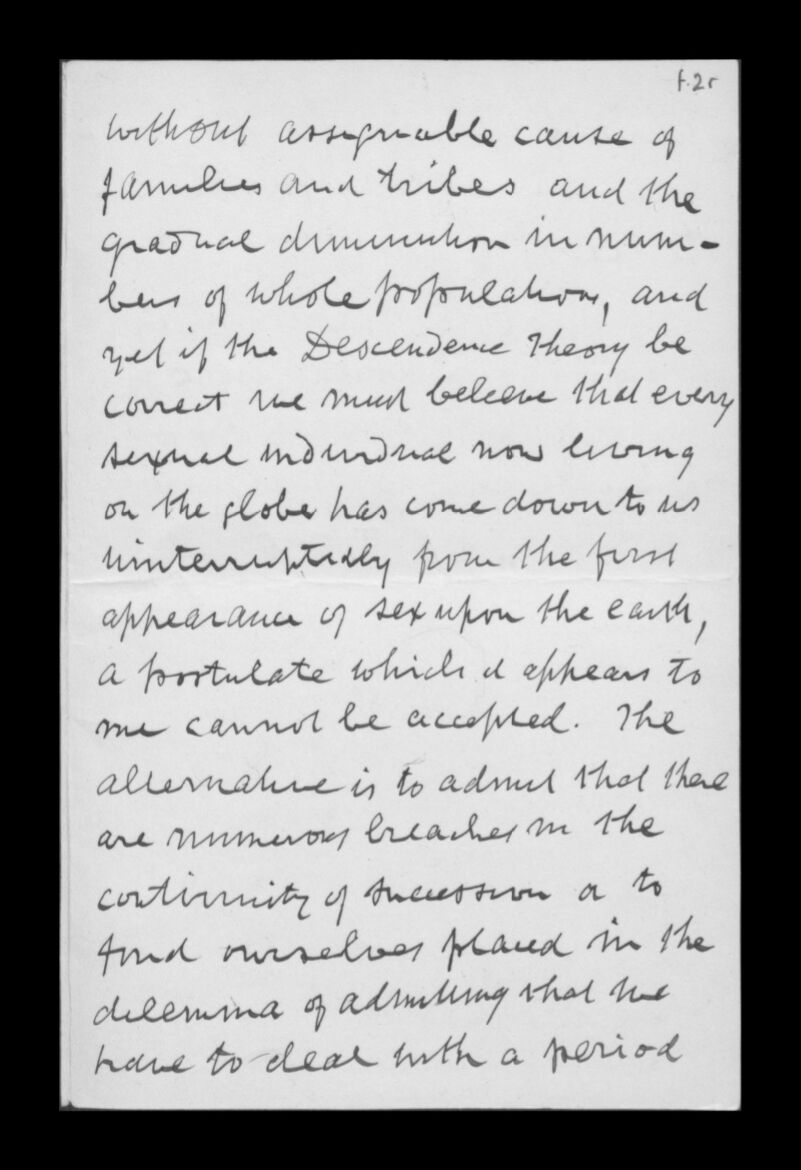 f.2r
without assignable cause of
families and tribes and the
gradual diminution in num-
bers of whole populations, and
yet if the Descendence Theory be
correct we must beleeve that every
sexual individual now living
on the globe has come down to us
uninterruptedly from the first
appearance of sex upon the earth,
a postulate which it appears to
me cannot be accepted. The
alternative is to admit that there
are numerous breaches in the
continuity of succession or to
find ourselves placed in the
dilemma of admitting that we
have to deal with a period